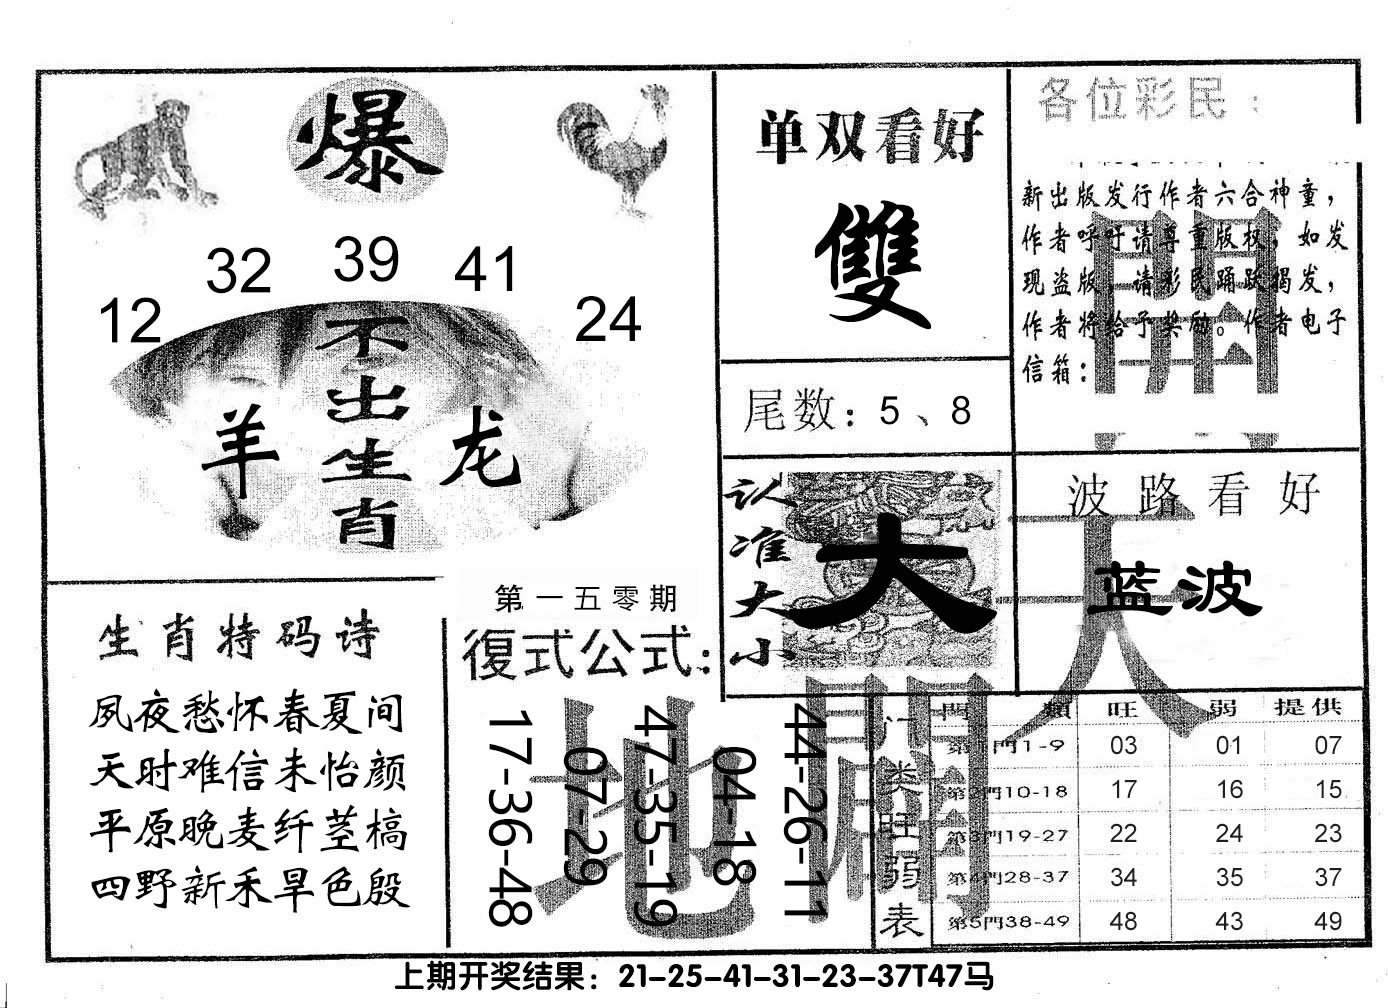 爆
12 32 39 41 24
不出生肖
羊 龙
单双看好
雙
尾数：5、8
各位彩民：
新出版发行作者六合神童，
作者呼吁请尊重版权，如发
现盗版，请彩民踊跃揭发，
作者将给予奖励。作者电子
信箱：
開
认准大小
大
波路看好
蓝波
天
生肖特码诗
夙夜愁怀春夏间
天时难信未怡颜
平原晚麦纤茎槁
四野新禾旱色殷
第一五零期
復式公式：
17-36-48
07-29
47-35-19
04-18
44-26-11
地
门类旺弱表
門類 旺 弱 提供
第1門1-9 03 01 07
第2門10-18 17 16 15
第3門19-27 22 24 23
第4門28-37 34 35 37
第5門38-49 48 43 49
上期开奖结果：21-25-41-31-23-37T47马